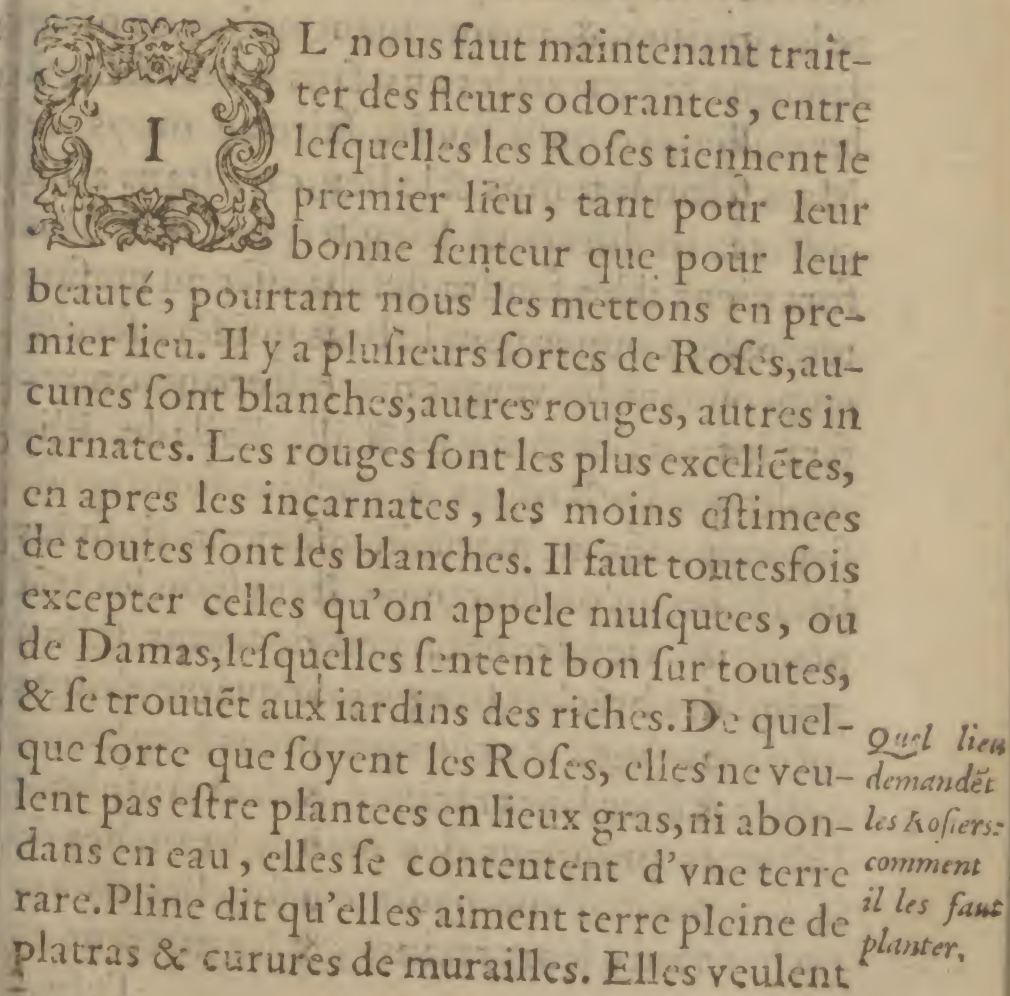 IL nous faut maintenant trait-
ter des fleurs odorantes, entre
leſquelles les Roſes tiennent le
premier lieu, tant pour leur
bonne ſenteur que pour leur
beauté, pourtant nous les mettons en pre-
mier lieu. Il y a pluſieurs ſortes de Roſes, au-
cunes ſont blanches, autres rouges, autres in
carnates. Les rouges ſont les plus excellẽtes,
en apres les incarnates, les moins eſtimees
de toutes ſont les blanches. Il faut toutesfois
excepter celles qu'on appele muſquees, ou
de Damas, leſquelles ſentent bon ſur toutes,
& ſe trouuẽt aux iardins des riches. De quel-
que ſorte que ſoyent les Roſes, elles ne veu-
lent pas eſtre plantees en lieux gras, ni abon-
dans en eau, elles ſe contentent d'vne terre
rare. Pline dit qu'elles aiment terre pleine de
platras & curures de murailles. Elles veulent
Quel lieu
demandẽt
les Roſiers:
comment
il les faut
planter.